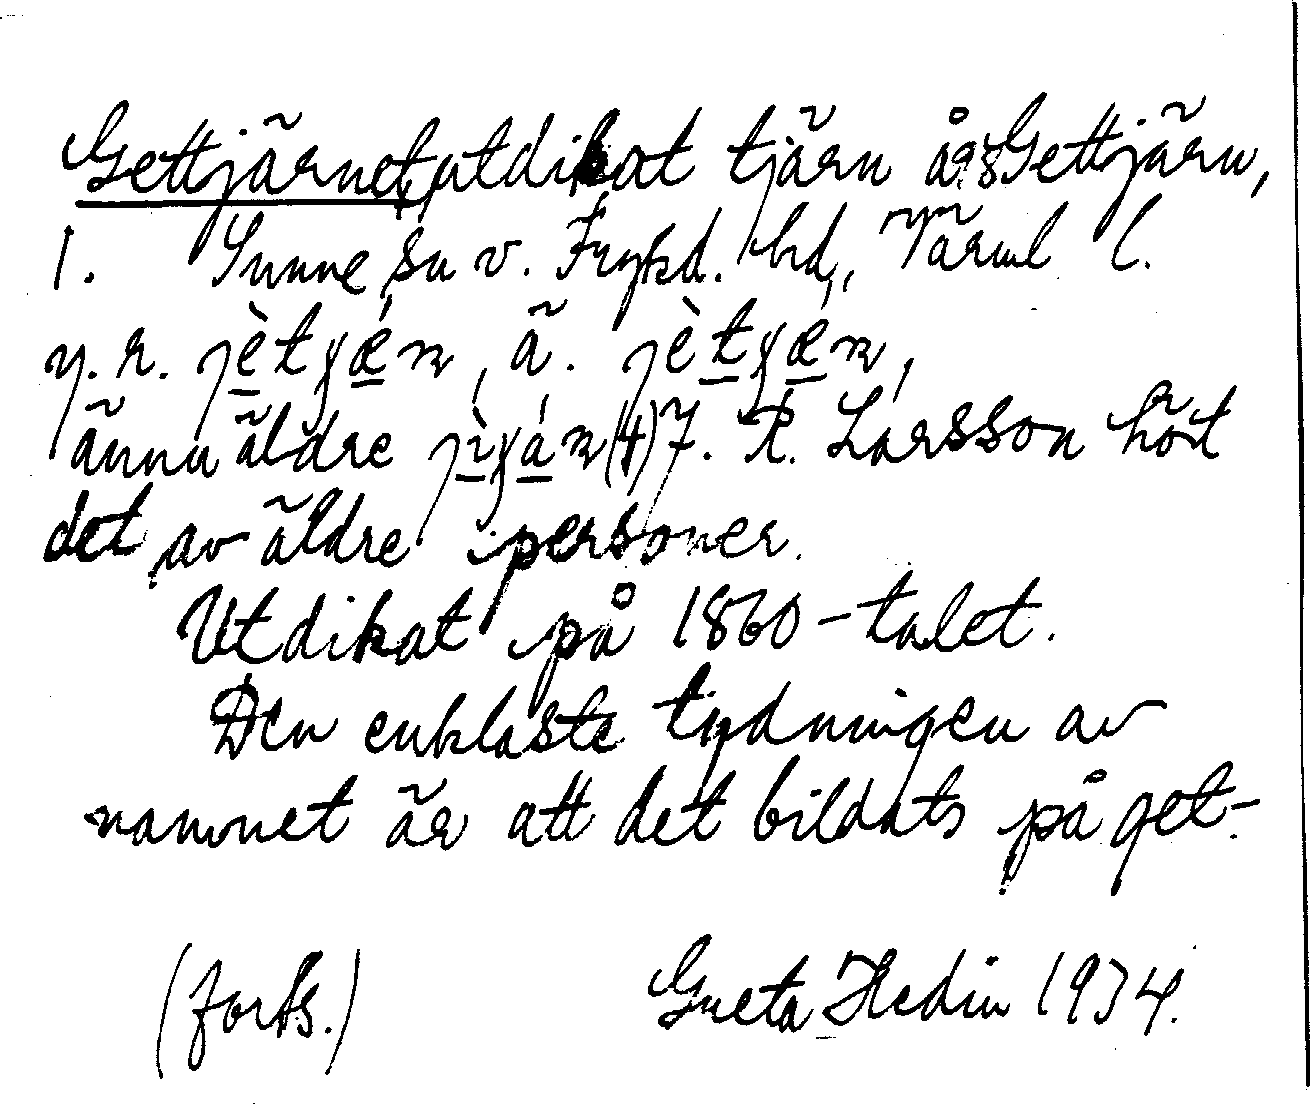 Gettjärnet, utdikat tjärn å ägs Gettjärn,
1. Sunne sn v. Frykd. hd, Värml l.
y. r. jètɣǽn, ä. jètɣǽn,
ännu äldre jìɣán(4)7. R. Larsson hört
det av äldre personer.
Utdikat på 1860-talet.
Den enklaste tydningen av
namnet är att det bildats på get-
(forts.) Greta Hedin 1934.